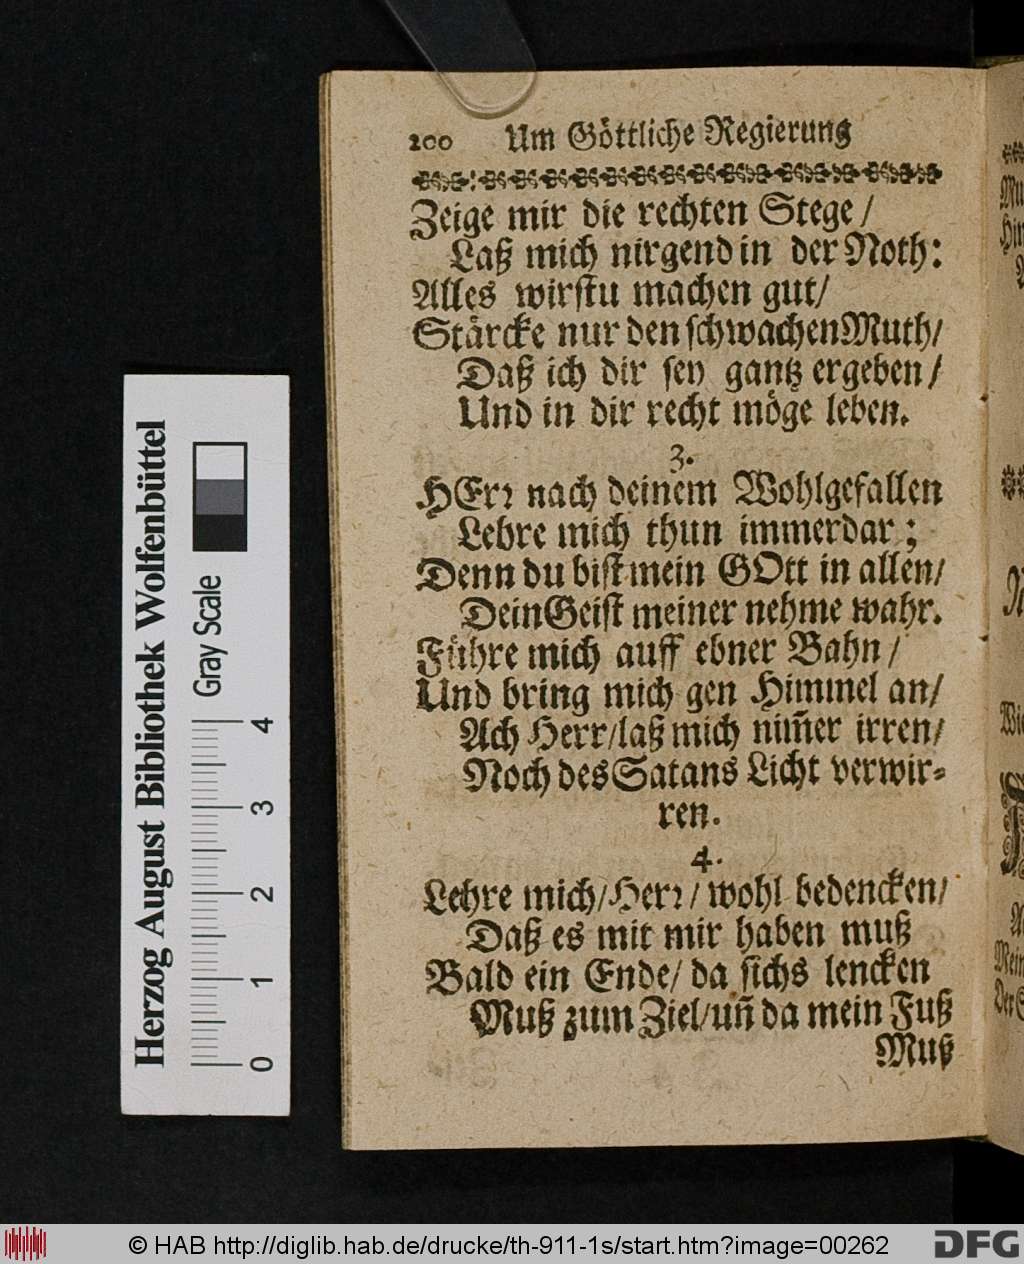 200 Um Göttliche Regierung
Zeige mir die rechten Stege /
Laß mich nirgend in der Noth:
Alles wirstu machen gut/
Stärcke nur den schwachen Muth/
Daß ich dir sey gantz ergeben /
Und in dir recht möge leben.
3.
HErꝛ nach deinem Wohlgefallen
Lehre mich thun immerdar ;
Denn du bist mein GOtt in allen/
Dein Geist meiner nehme wahr.
Führe mich auff ebner Bahn /
Und bring mich gen Himmel an/
Ach Herr/laß mich nim̃er irren/
Noch des Satans Licht verwir-
ren.
4.
Lehre mich/Herꝛ / wohl bedencken/
Daß es mit mir haben muß
Bald ein Ende/ da sichs lencken
Muß zum Ziel/un̄ da mein Fuß
Muß
Herzog August Bibliothek Wolfenbüttel
Gray Scale
0 1 2 3 4
© HAB http://diglib.hab.de/drucke/th-911-1s/start.htm?image=00262
DFG